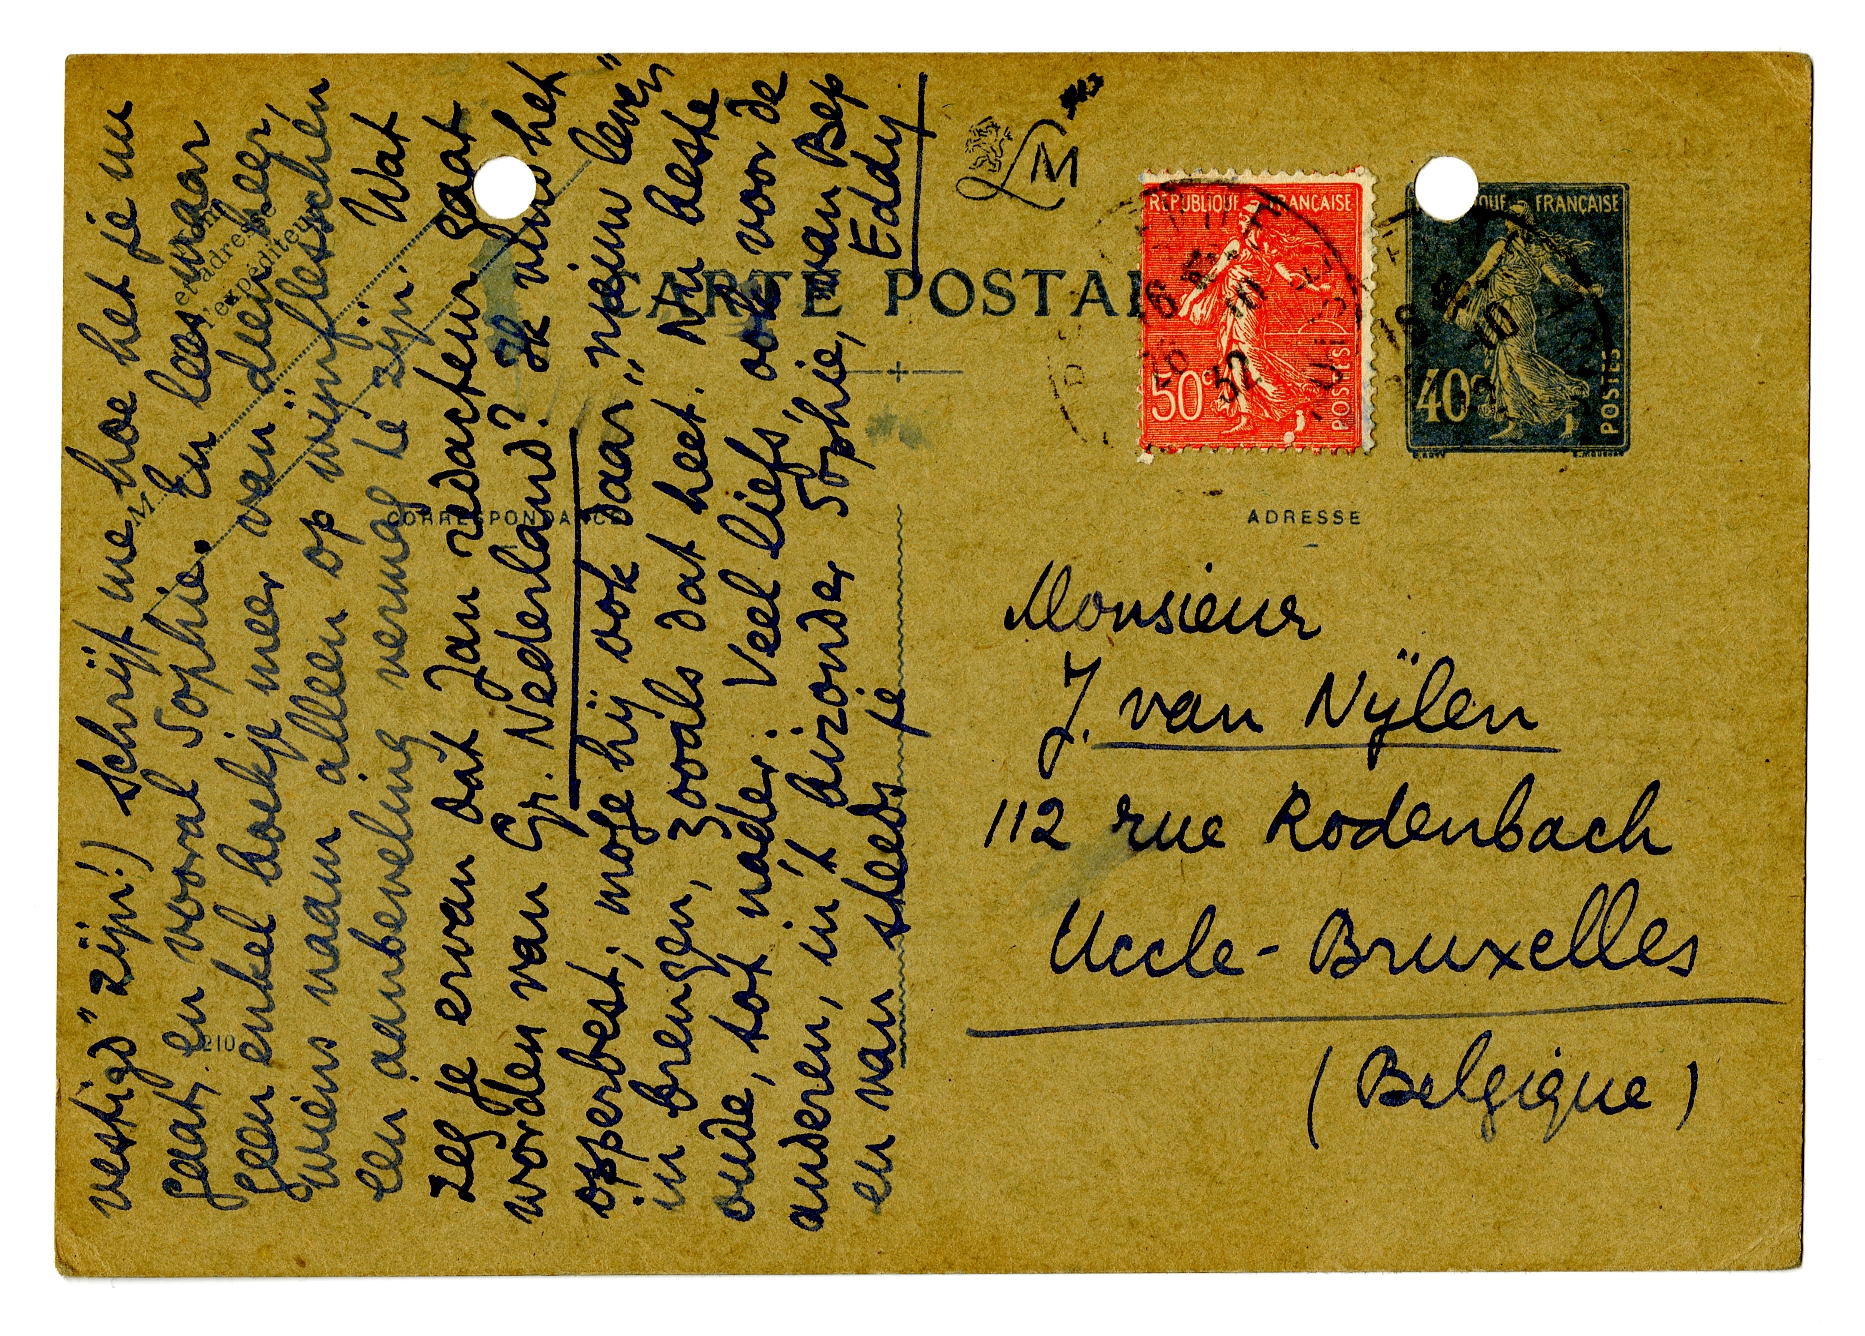 vestigd" zijn!) Schrijf me hoe het je nu
gaat, en vooral Sophie. En lees maar
geen enkel boekje meer van dien heer,
wiens naam alleen op wijnfleschen
een aanbeveling vermag te zijn. Wat
zeg je ervan dat Jan redacteur gaat
worden van Gr. Nederland? Ik vind het
opperbest; moge hij ook daar "nieuw leven"
in brengen, zooals dat heet. Nu beste
oude, tot nader. Veel liefs, ook voor de
anderen, in 't bizonder Sophie, van Bep
en van steeds je
Eddy
M
Nom
et adresse
de l'expéditeur
CARTE POSTALE
CORRESPONDANCE
ADRESSE
210
LM
RÉPUBLIQUE FRANÇAISE
50c
POSTES
QUE FRANÇAISE
40c
POSTES
16
10
32
Monsieur
J. van Nijlen
112 rue Rodenbach
Uccle-Bruxelles
(Belgique)